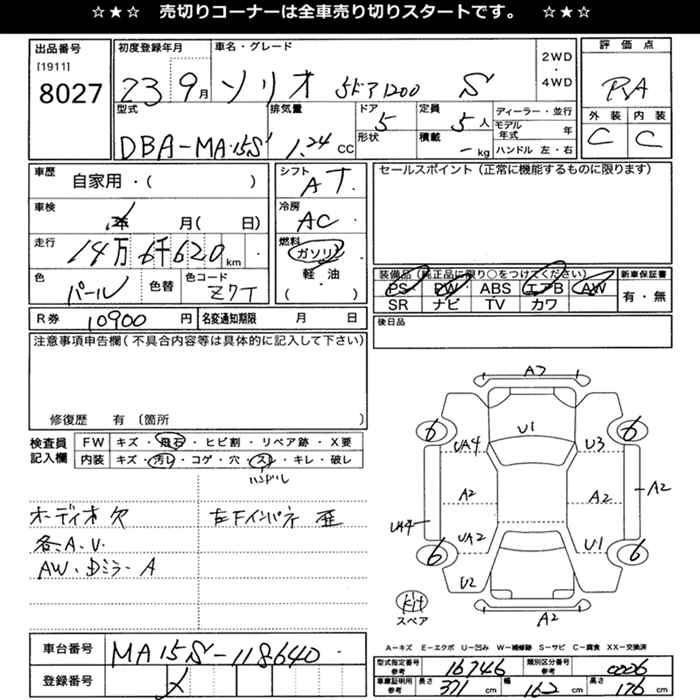 ☆★☆ 売切りコーナーは全車売り切りスタートです。 ☆★☆
出品番号
[1911]
8027
初度登録年月
23 9月
車名・グレード
ソリオ 5ドア1200 S
2WD
・
4WD
評価点
RA
外装 内装
C C
型式
DBA-MA15S
排気量
1.24 CC
ドア
5
形状
定員
5人
積載
- kg
ディーラー・並行
モデル年式 年
ハンドル 左・右
車歴
自家用・( )
車検
年 月( 日)
走行
14万6千620 km
色
パール
色替
色コード
Z7T
シフト
AT
冷房
AC
燃料
ガソリン
軽・油
( )
セールスポイント(正常に機能するものに限ります)
装備品(純正品に限り○をつけてください)
PS PW ABS エアB AW
SR ナビ TV カワ
新車保証書
有・無
R券 10900 円 名変通知期限 月 日
後日品
注意事項申告欄(不具合内容等は具体的に記入して下さい)
修復歴 有 (箇所 )
検査員
記入欄
FW キズ・飛石・ヒビ割・リペア跡・X要
内装 キズ・汚れ・コゲ・穴・スレ・キレ・破レ
ハンドル
オーディオ欠
各A.V.
AW.Dミラー A
左下インパネ 亜
A3
U1
6 6
UA4 U3
A2 A2 A2
UA4
UA2 U1
6 6
U2
キット
スペア
A2
A-キズ E-エクボ U-凹み W-補修跡 S-サビ C-腐食 XX-交換済
車台番号 MA15S-118640
登録番号
型式指定番号
参考
16746
類別区分番号
参考
0006
車庫証明用
参考
長さ 371 cm 幅 162 cm 高さ 176 cm